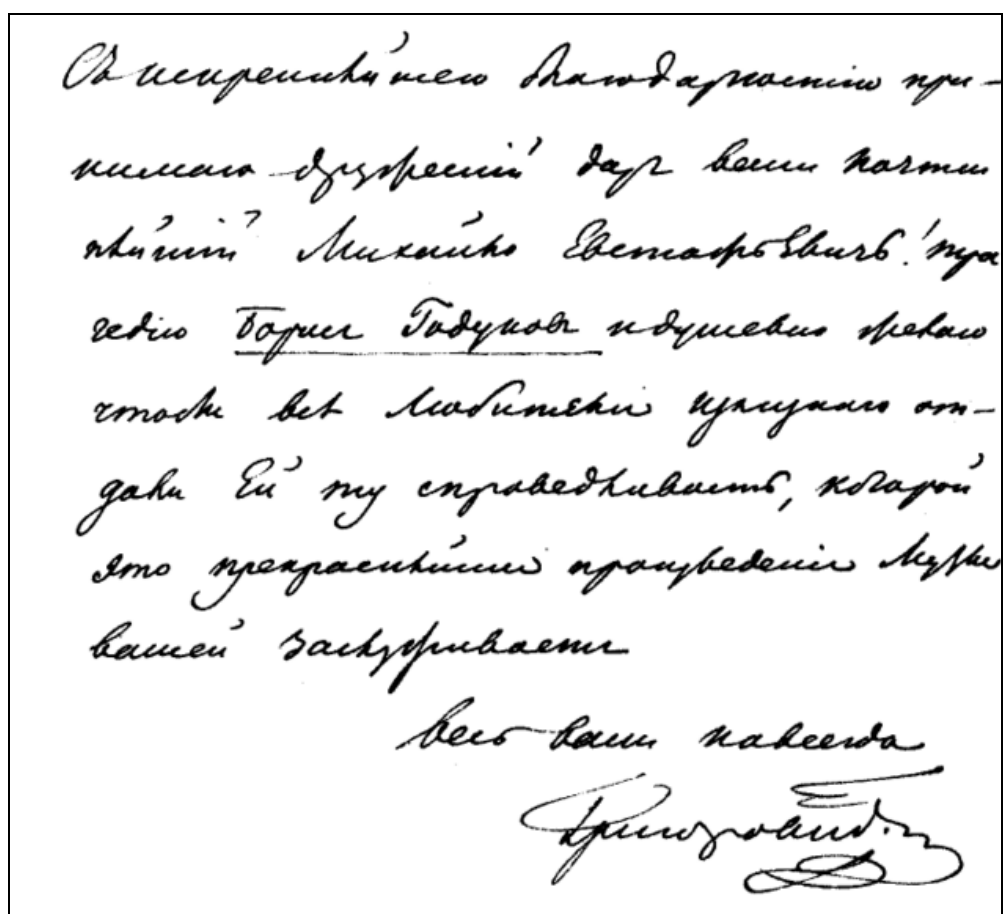 Съ искреннѣйшею благодарностію при-
нимаю дружескій даръ вашъ почтен
нѣйшій Михайло Евстафьевичь! тра
гедію Борисъ Годуновъ и душевно желаю
чтобы всѣ любители изящнаго от-
дали Ей ту справедливость, которой
это прекраснѣйшее произведеніе Музы
вашей заслуживаетъ
весь вашъ навсегда